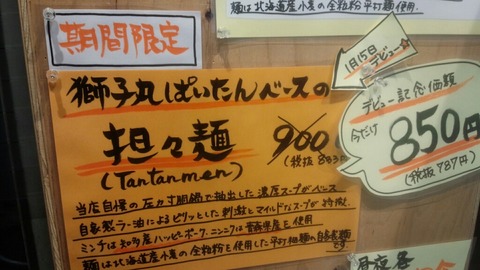 麺は北海道産小麦の全粒粉平打麺使用。
期間限定
1月15日
デビュー☆
獅子丸ぱいたんベースの
担々麺
(Tantanmen)
900
(税抜 833
デビュー記念価額
今だけ
850円
(税抜787円)
当店自慢の圧力寸胴鍋で抽出した濃厚スープがベース
自家製ラー油によるピリッとした刺激とマイルドなスープが特徴。
ミンチは知多産ハッピーポーク、ニンニクは青森県産を使用
麺は北海道産小麦の全粒粉を使用した平打細麺の自家製麺
です。